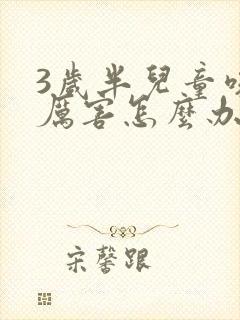 3歲半兒童咳
厲害怎麼办
宋馨跟